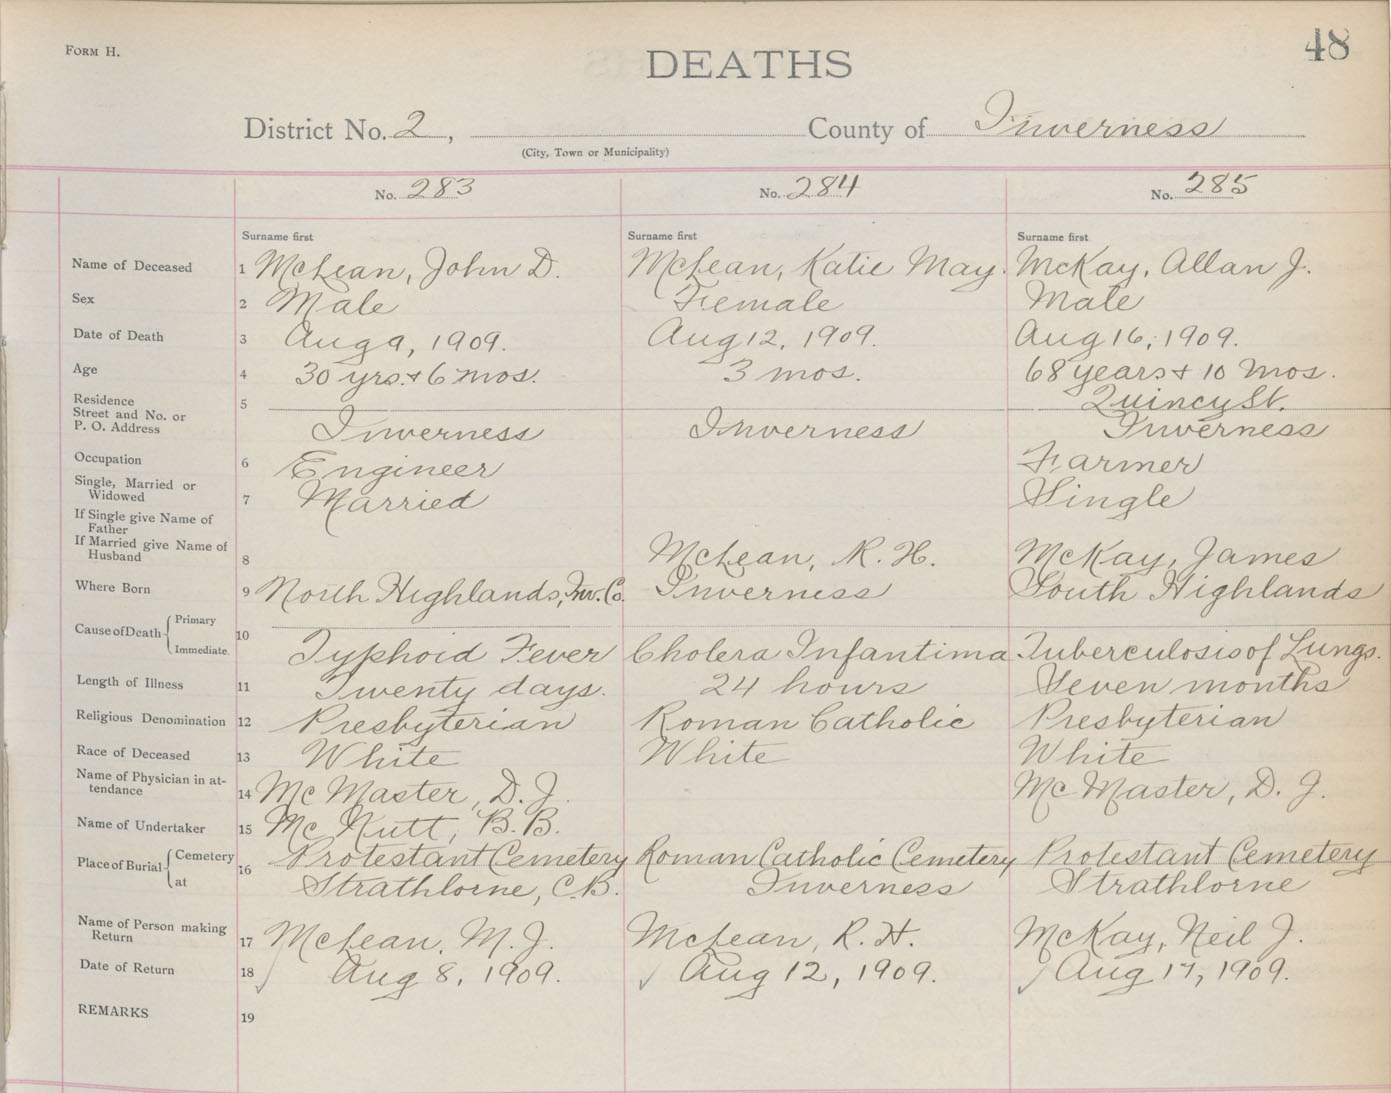 FORM H.
48
DEATHS
District No. 2, County of Inverness
(City, Town or Municipality)
No. 283 No. 284 No. 285
Surname first Surname first Surname first
Name of Deceased 1 McLean, John D. McLean, Katie May. McKay, Allan J.
Sex 2 Male Female Male
Date of Death 3 Aug 9, 1909. Aug 12, 1909. Aug 16, 1909.
Age 4 30 yrs. + 6 mos. 3 mos. 68 years + 10 mos.
Residence 5 Quincy St.
Street and No. or
P. O. Address Inverness Inverness Inverness
Occupation 6 Engineer Farmer
Single, Married or
Widowed 7 Married Single
If Single give Name of
Father
If Married give Name of
Husband 8 McLean, R. H. McKay, James
Where Born 9 North Highlands, Inv. Co. Inverness South Highlands
Cause of Death Primary
Immediate. 10 Typhoid Fever Cholera Infantima Tuberculosis of Lungs.
Length of Illness 11 Twenty days. 24 hours Seven months
Religious Denomination 12 Presbyterian Roman Catholic Presbyterian
Race of Deceased 13 White White White
Name of Physician in at-
tendance 14 McMaster, D. J. McMaster, D. J.
Name of Undertaker 15 McNutt, B. B.
Place of Burial Cemetery 16 Protestant Cemetery Roman Catholic Cemetery Protestant Cemetery
at Strathlorne, C.B. Inverness Strathlorne
Name of Person making
Return 17 McLean, M. J. McLean, R. H. McKay, Neil J.
Date of Return 18 Aug 8, 1909. Aug 12, 1909. Aug 17, 1909.
REMARKS 19